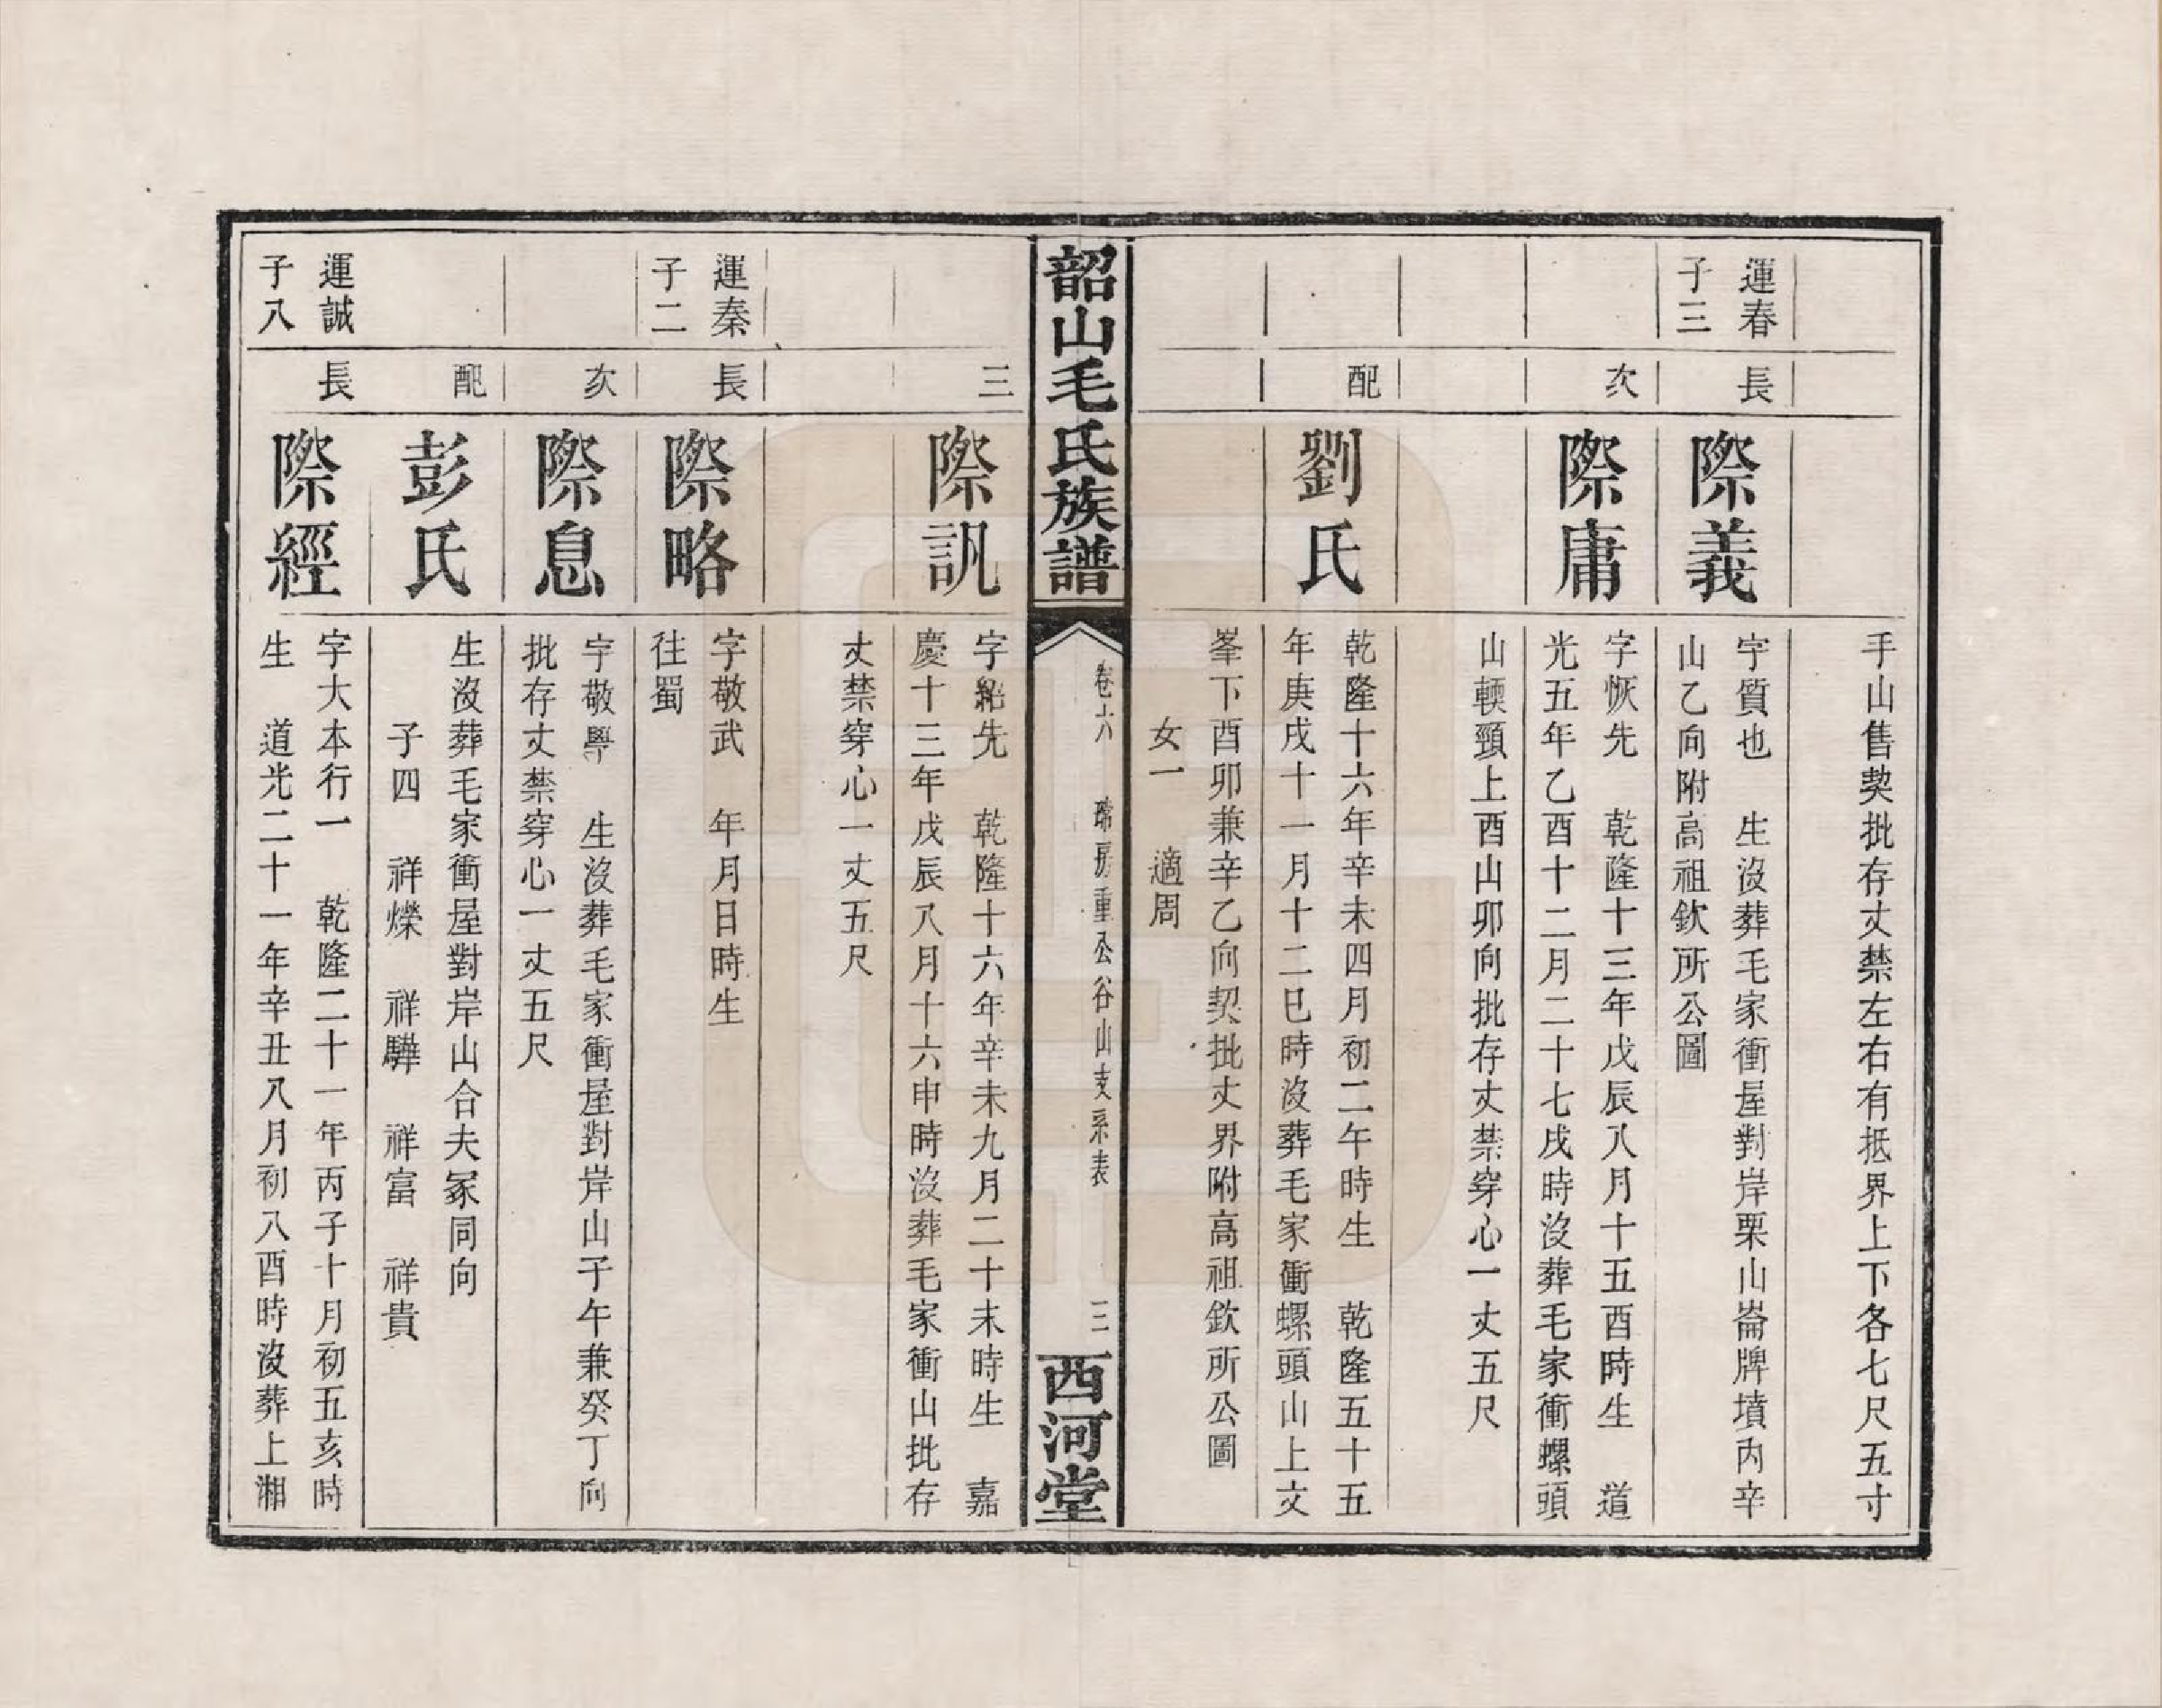 手山售契批存丈禁左右有抵界上下各七尺五寸
運春
子三
長
際義
字質也　生沒葬毛家衝屋對岸栗山崙牌墳內辛
山乙向附高祖欽所公圖
次
際庸
字恢先　乾隆十三年戊辰八月十五酉時生　道
光五年乙酉十二月二十七戌時沒葬毛家衝螺頭
山輭頸上酉山卯向批存丈禁穿心一丈五尺
配
劉氏
乾隆十六年辛未四月初二午時生　乾隆五十五
年庚戌十一月十二巳時沒葬毛家衝螺頭山上文
峯下酉卯兼辛乙向契批丈界附高祖欽所公圖
女一　適周
韶山毛氏族譜
卷六　瑞房重公谷山支系表　三
西河堂
三
際訊
字紹先　乾隆十六年辛未九月二十未時生　嘉
慶十三年戊辰八月十六申時沒葬毛家衝山批存
丈禁穿心一丈五尺
運秦
子二
長
際略
字敬武　年月日時生
往蜀
次
際息
字敬學　生沒葬毛家衝屋對岸山子午兼癸丁向
批存丈禁穿心一丈五尺
配
彭氏
生沒葬毛家衝屋對岸山合夫冢同向
子四　祥爍　祥驊　祥富　祥貴
運誠
子八
長
際經
字大本行一　乾隆二十一年丙子十月初五亥時
生　道光二十一年辛丑八月初八酉時沒葬上湘